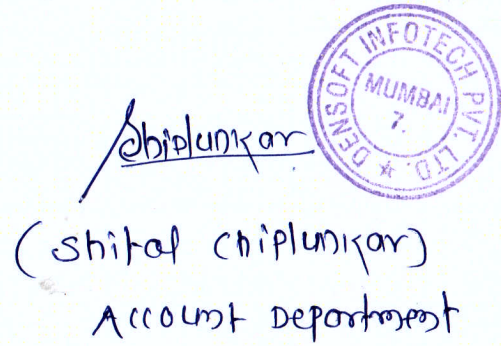 DENSOFT INFOTECH PVT. LTD.
MUMBAI
7.
Shiplunkar
(Shital Chiplunkar)
Account Department